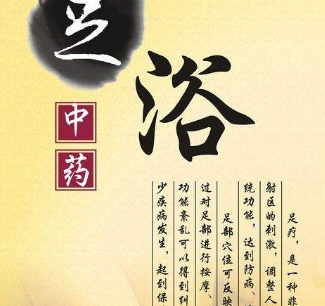 足
浴
中
药
足疗,是一种非
射区的刺激,调整人
统功能,达到防病、
足部穴位可反映
过对足部进行按摩、
功能紊乱可以得到纠
少疾病发生,起到保